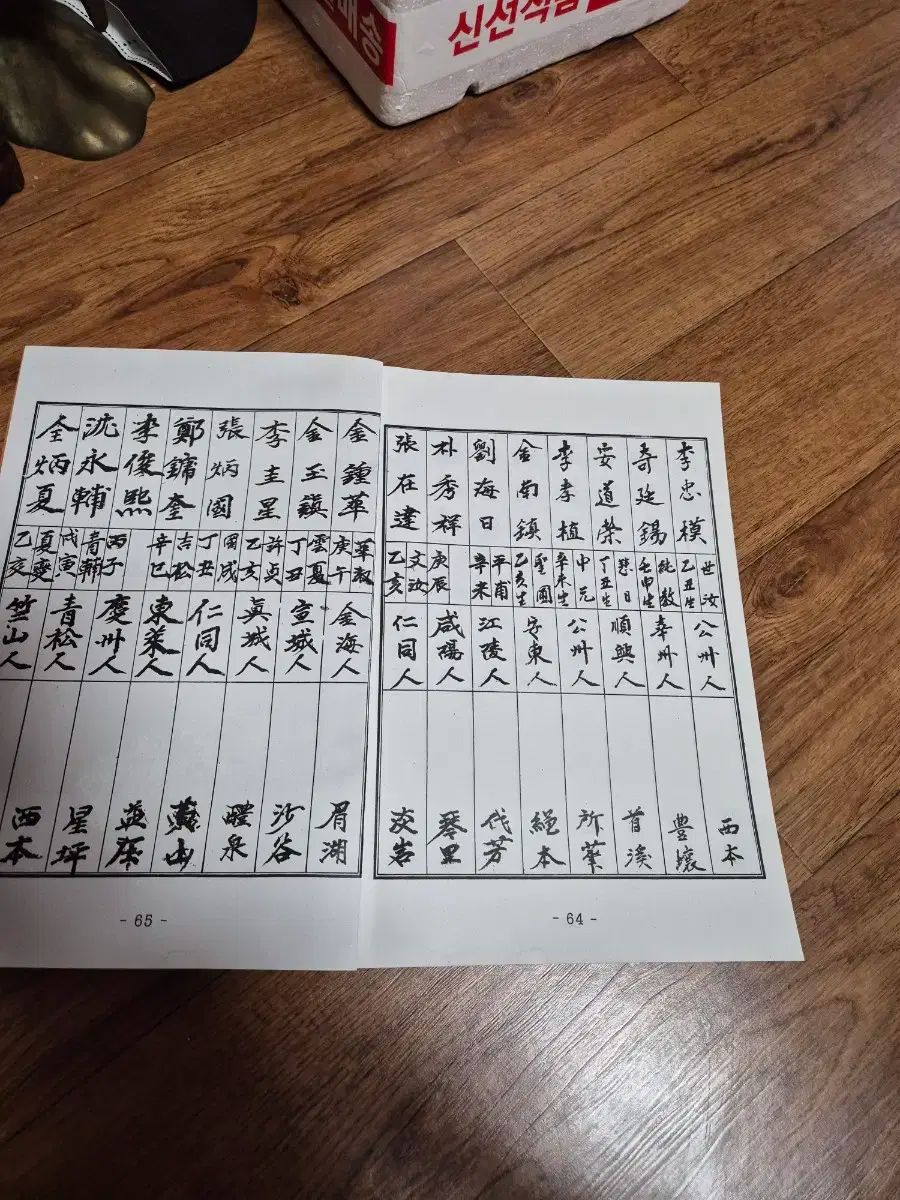 신선식품
배송
李忠模
世汝
乙丑生
公州人
西本
奇廷錫
純敎
壬申生
奉州人
豊壤
安道榮
丁丑生
順興人
首溪
李孝植
中元
辛未生
公州人
所菴
金南鎭
聖國
乙亥生
安東人
劉海日
平甫
辛未
江陵人
代芳
朴秀祥
庚辰
咸陽人
琴里
張在達
文汝
乙亥
仁同人
- 64 -
金鍾華
華淑
庚午
金海人
眉湖
金玉鎭
雲夏
丁丑
宣城人
沙谷
李圭星
許貞
乙亥
眞城人
醴泉
張炳國
國成
丁丑
仁同人
鄭鏞奎
吉松
辛巳
東萊人
李俊熙
丙子
慶州人
沈永輔
靑輔
戊寅
靑松人
星坪
全炳夏
夏燮
乙亥
竺山人
西本
- 65 -